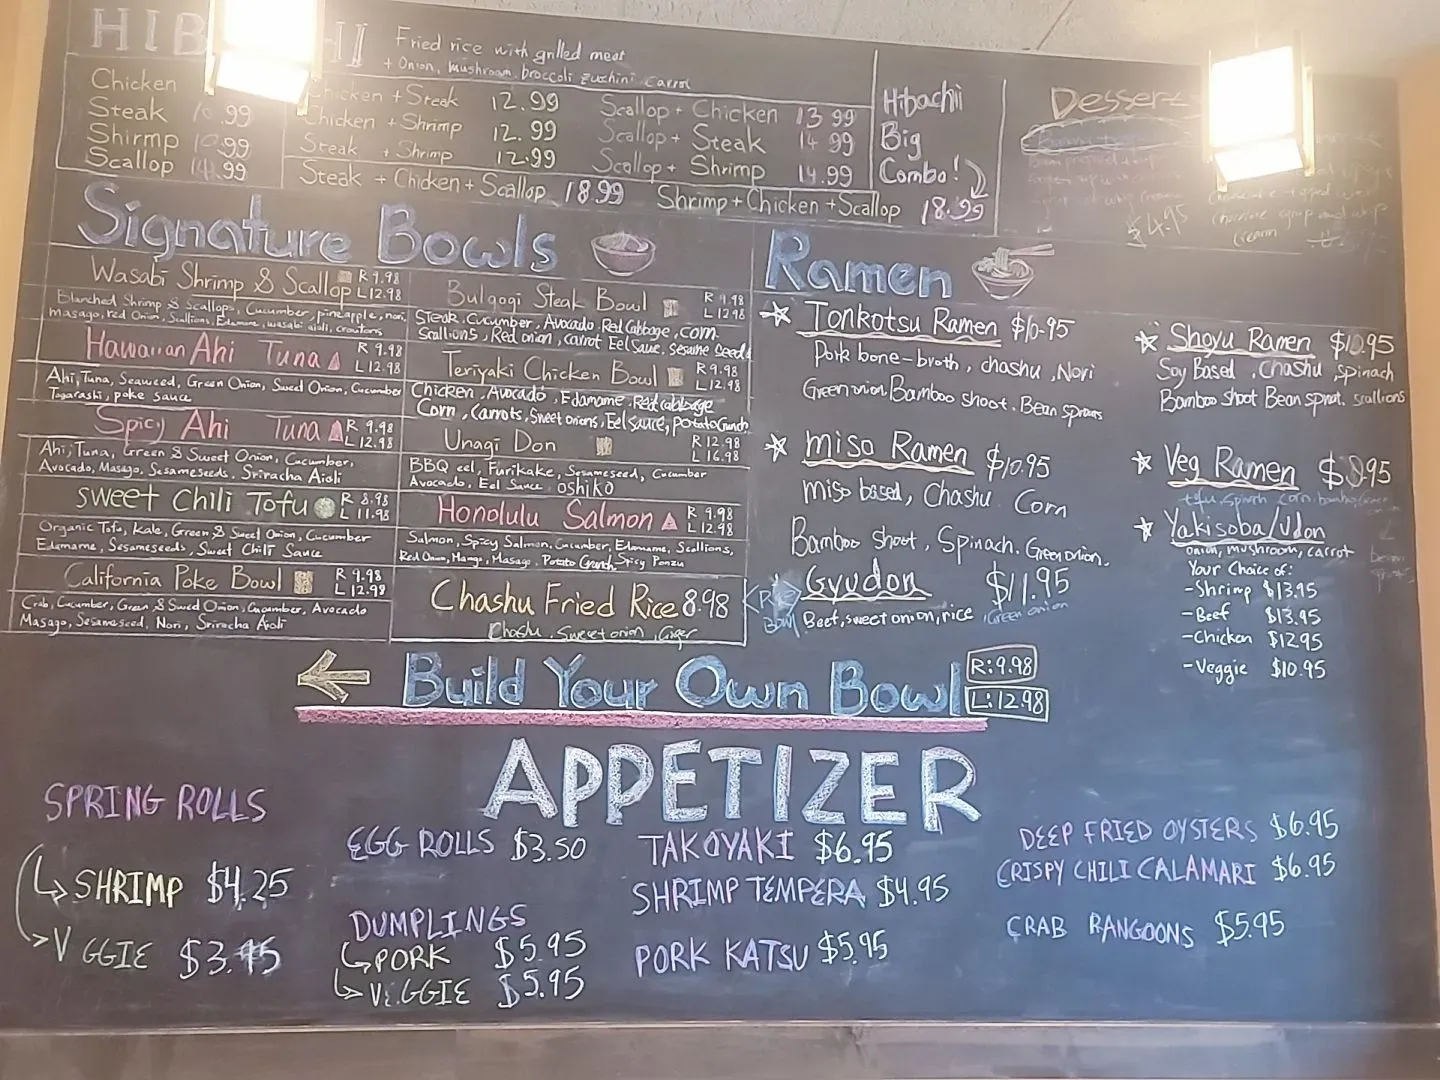 Fried rice with grilled meat
+ Onion, mushroom, broccoli zuchini, carrot
Chicken
Steak 10.99
Shirmp 10.99
Scallop 14.99
Chicken + Steak 12.99
Chicken + Shrimp 12.99
Steak + Shrimp 12.99
Scallop + Chicken 13.99
Scallop + Steak 14.99
Scallop + Shrimp 14.99
Steak + Chicken + Scallop 18.99
Shrimp + Chicken + Scallop 18.99
Hibachi
Big
Combo!
$4.95
Signature Bowls
Wasabi Shrimp & Scallop R 9.98
L 12.98
Blanched Shrimp & Scallops, Cucumber, pineapple, nori,
masago, red Onion, Scallions, Edamame, wasabi aioli, croutons
Hawaiian Ahi Tuna R 9.98
L 12.98
Ahi, Tuna, Seaweed, Green Onion, Sweet Onion, Cucumber
Togarashi, poke sauce
Spicy Ahi Tuna R 9.98
L 12.98
Ahi, Tuna, Green & Sweet Onion, Cucumber,
Avocado, Masago, Sesameseeds, Sriracha Aioli
Sweet Chili Tofu R 8.98
L 11.98
Organic Tofu, Kale, Green & Sweet Onion, Cucumber
Edamame, Sesameseeds, Sweet Chili Sauce
California Poke Bowl R 9.98
L 12.98
Crab, Cucumber, Green & Sweet Onion, Cucumber, Avocado
Masago, Sesameseed, Nori, Sriracha Aioli
Bulgogi Steak Bowl R 9.98
L 12.98
Steak, Cucumber, Avocado, Red Cabbage, corn
Scallions, Red onion, carrot Eel Sauce, sesame Seeds
Teriyaki Chicken Bowl R 9.98
L 12.98
Chicken, Avocado, Edamame, Red cabbage
Corn, carrots, Sweet onions, Eel sauce, potato Crunch
Unagi Don R 12.98
L 16.98
BBQ eel, Furikake, Sesameseed, Cucumber
Avocado, Eel Sauce, oshiko
Honolulu Salmon R 9.98
L 12.98
Salmon, Spicy Salmon, Cucumber, Edamame, Scallions,
Red Onion, Mango, Masago, Potato Crunch, Spicy Ponzu
Chashu Fried Rice 8.98
Chashu, Sweet onion, Ginger
Ramen
Tonkotsu Ramen $10.95
Pork bone-broth, chashu, Nori
Green onion, Bamboo shoot, Bean sprouts
Miso Ramen $10.95
Miso based, Chashu Corn
Bamboo Shoot, Spinach, Green onion,
Rice
Bowl
Gyudon $11.95
Beef, sweet onion, rice, Green onion
Shoyu Ramen $10.95
Soy Based, Chashu, Spinach
Bamboo shoot Bean sprout, scallions
Veg Ramen
Yakisoba/Udon
onion, mushroom, carrot
Your Choice of:
-Shrimp $13.95
-Beef $13.95
-Chicken $12.95
-Veggie $10.95
Build Your Own Bowl R: 9.98
L: 12.98
APPETIZER
SPRING ROLLS
SHRIMP $4.25
VGGIE
EGG ROLLS $3.50
DUMPLINGS
PORK $5.95
VEGGIE $5.95
TAKOYAKI $6.95
SHRIMP TEMPERA $4.95
PORK KATSU $5.95
DEEP FRIED OYSTERS $6.95
CRISPY CHILI CALAMARI $6.95
CRAB RANGOONS $5.95